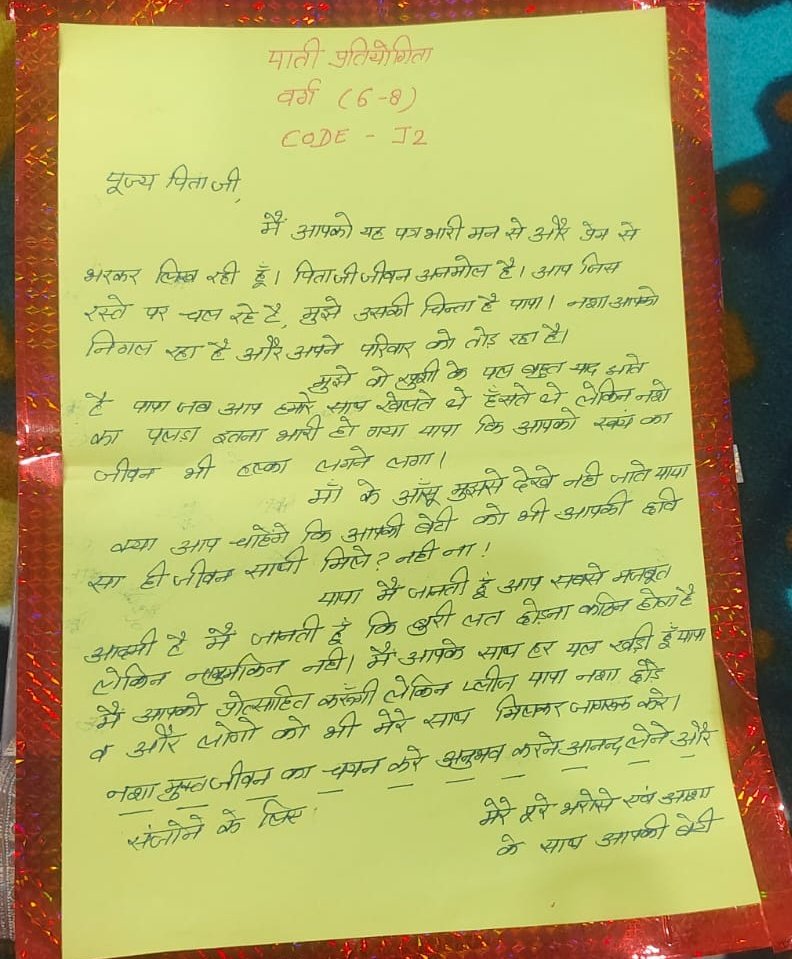 पाती प्रतियोगिता
वर्ग (6-8)
CODE - J2
पूज्य पिता जी,
मैं आपको यह पत्र भारी मन से और प्रेम से
भरकर लिख रही हूँ। पिताजी जीवन अनमोल है। आप जिस
रस्ते पर चल रहे है, मुझे उसकी चिन्ता है पापा। नशा आपको
निगल रहा है और अपने परिवार को तोड़ रहा है।
मुझे वो खुशी के पल बहुत याद आते
है पापा जब आप हमारे साथ खेलते थे हँसते थे लेकिन नशे
का पलड़ा इतना भारी हो गया पापा कि आपको स्वयं का
जीवन भी हल्का लगने लगा।
माँ के आँसू मुझसे देखे नही जाते पापा
क्या आप चाहेगे कि आपकी बेटी को भी आपकी छवि
सा ही जीवन साथी मिले? नही ना!
पापा मैं जानती हूँ आप सबसे मजबूत
आदमी है मैं जानती हूँ कि बुरी लत छोड़ना कठिन होता है
लेकिन नामुमकिन नही। मैं आपके साथ हर पल खड़ी हूँ पापा
मैं आपको प्रोत्साहित करूँगी लेकिन प्लीज पापा नशा छोड़े
व और लोगो को भी मेरे साथ मिलकर जागरूक करे।
नशा मुक्त जीवन का चयन करे अनुभव करने आनन्द लेने और
संजोने के लिए
मेरे पूरे भरोसे एवं आशा
के साथ आपकी बेटी